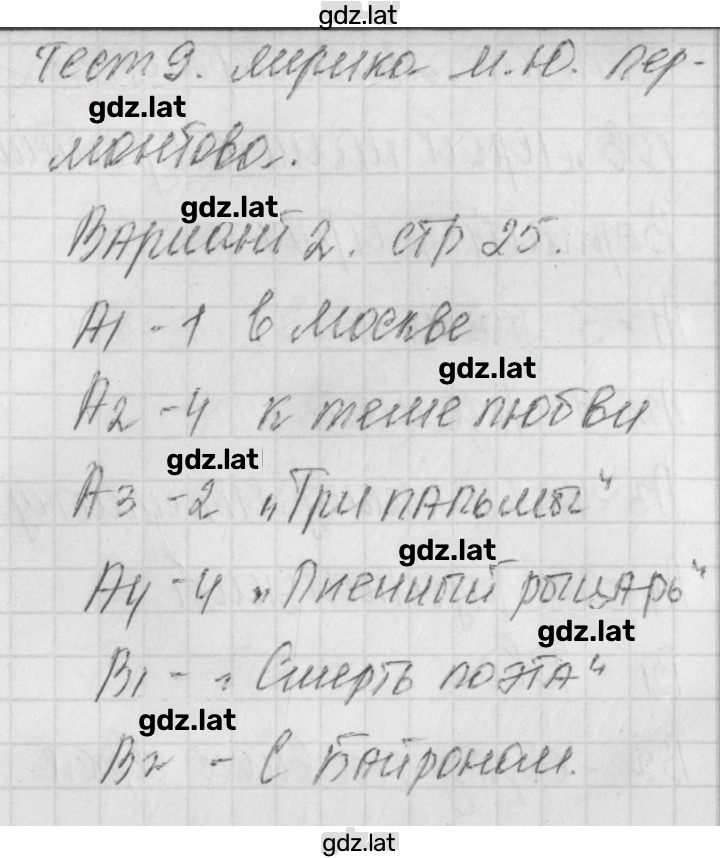 gdz.lat
Тест 9. Лирика М.Ю. Лер-
gdz.lat
монтова.
gdz.lat
Вариант 2. стр 25.
А1 - 1 в Москве
gdz.lat
А2 - 4 к теме любви
gdz.lat
А3 - 2 „Три пальмы“
gdz.lat
А4 - 4 „Пленный рыцарь“
gdz.lat
В1 - „Смерть поэта“
gdz.lat
В2 - С Байроном.
gdz.lat